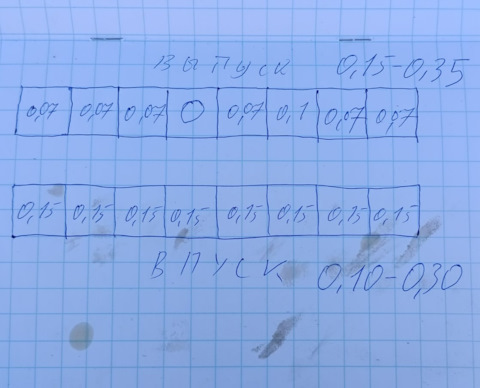 ВЫПУСК 0,15-0,35
0,07 0,07 0,07 0 0,07 0,1 0,07 0,07
0,15 0,15 0,15 0,15 0,15 0,15 0,15 0,15
ВПУСК 0,10-0,30